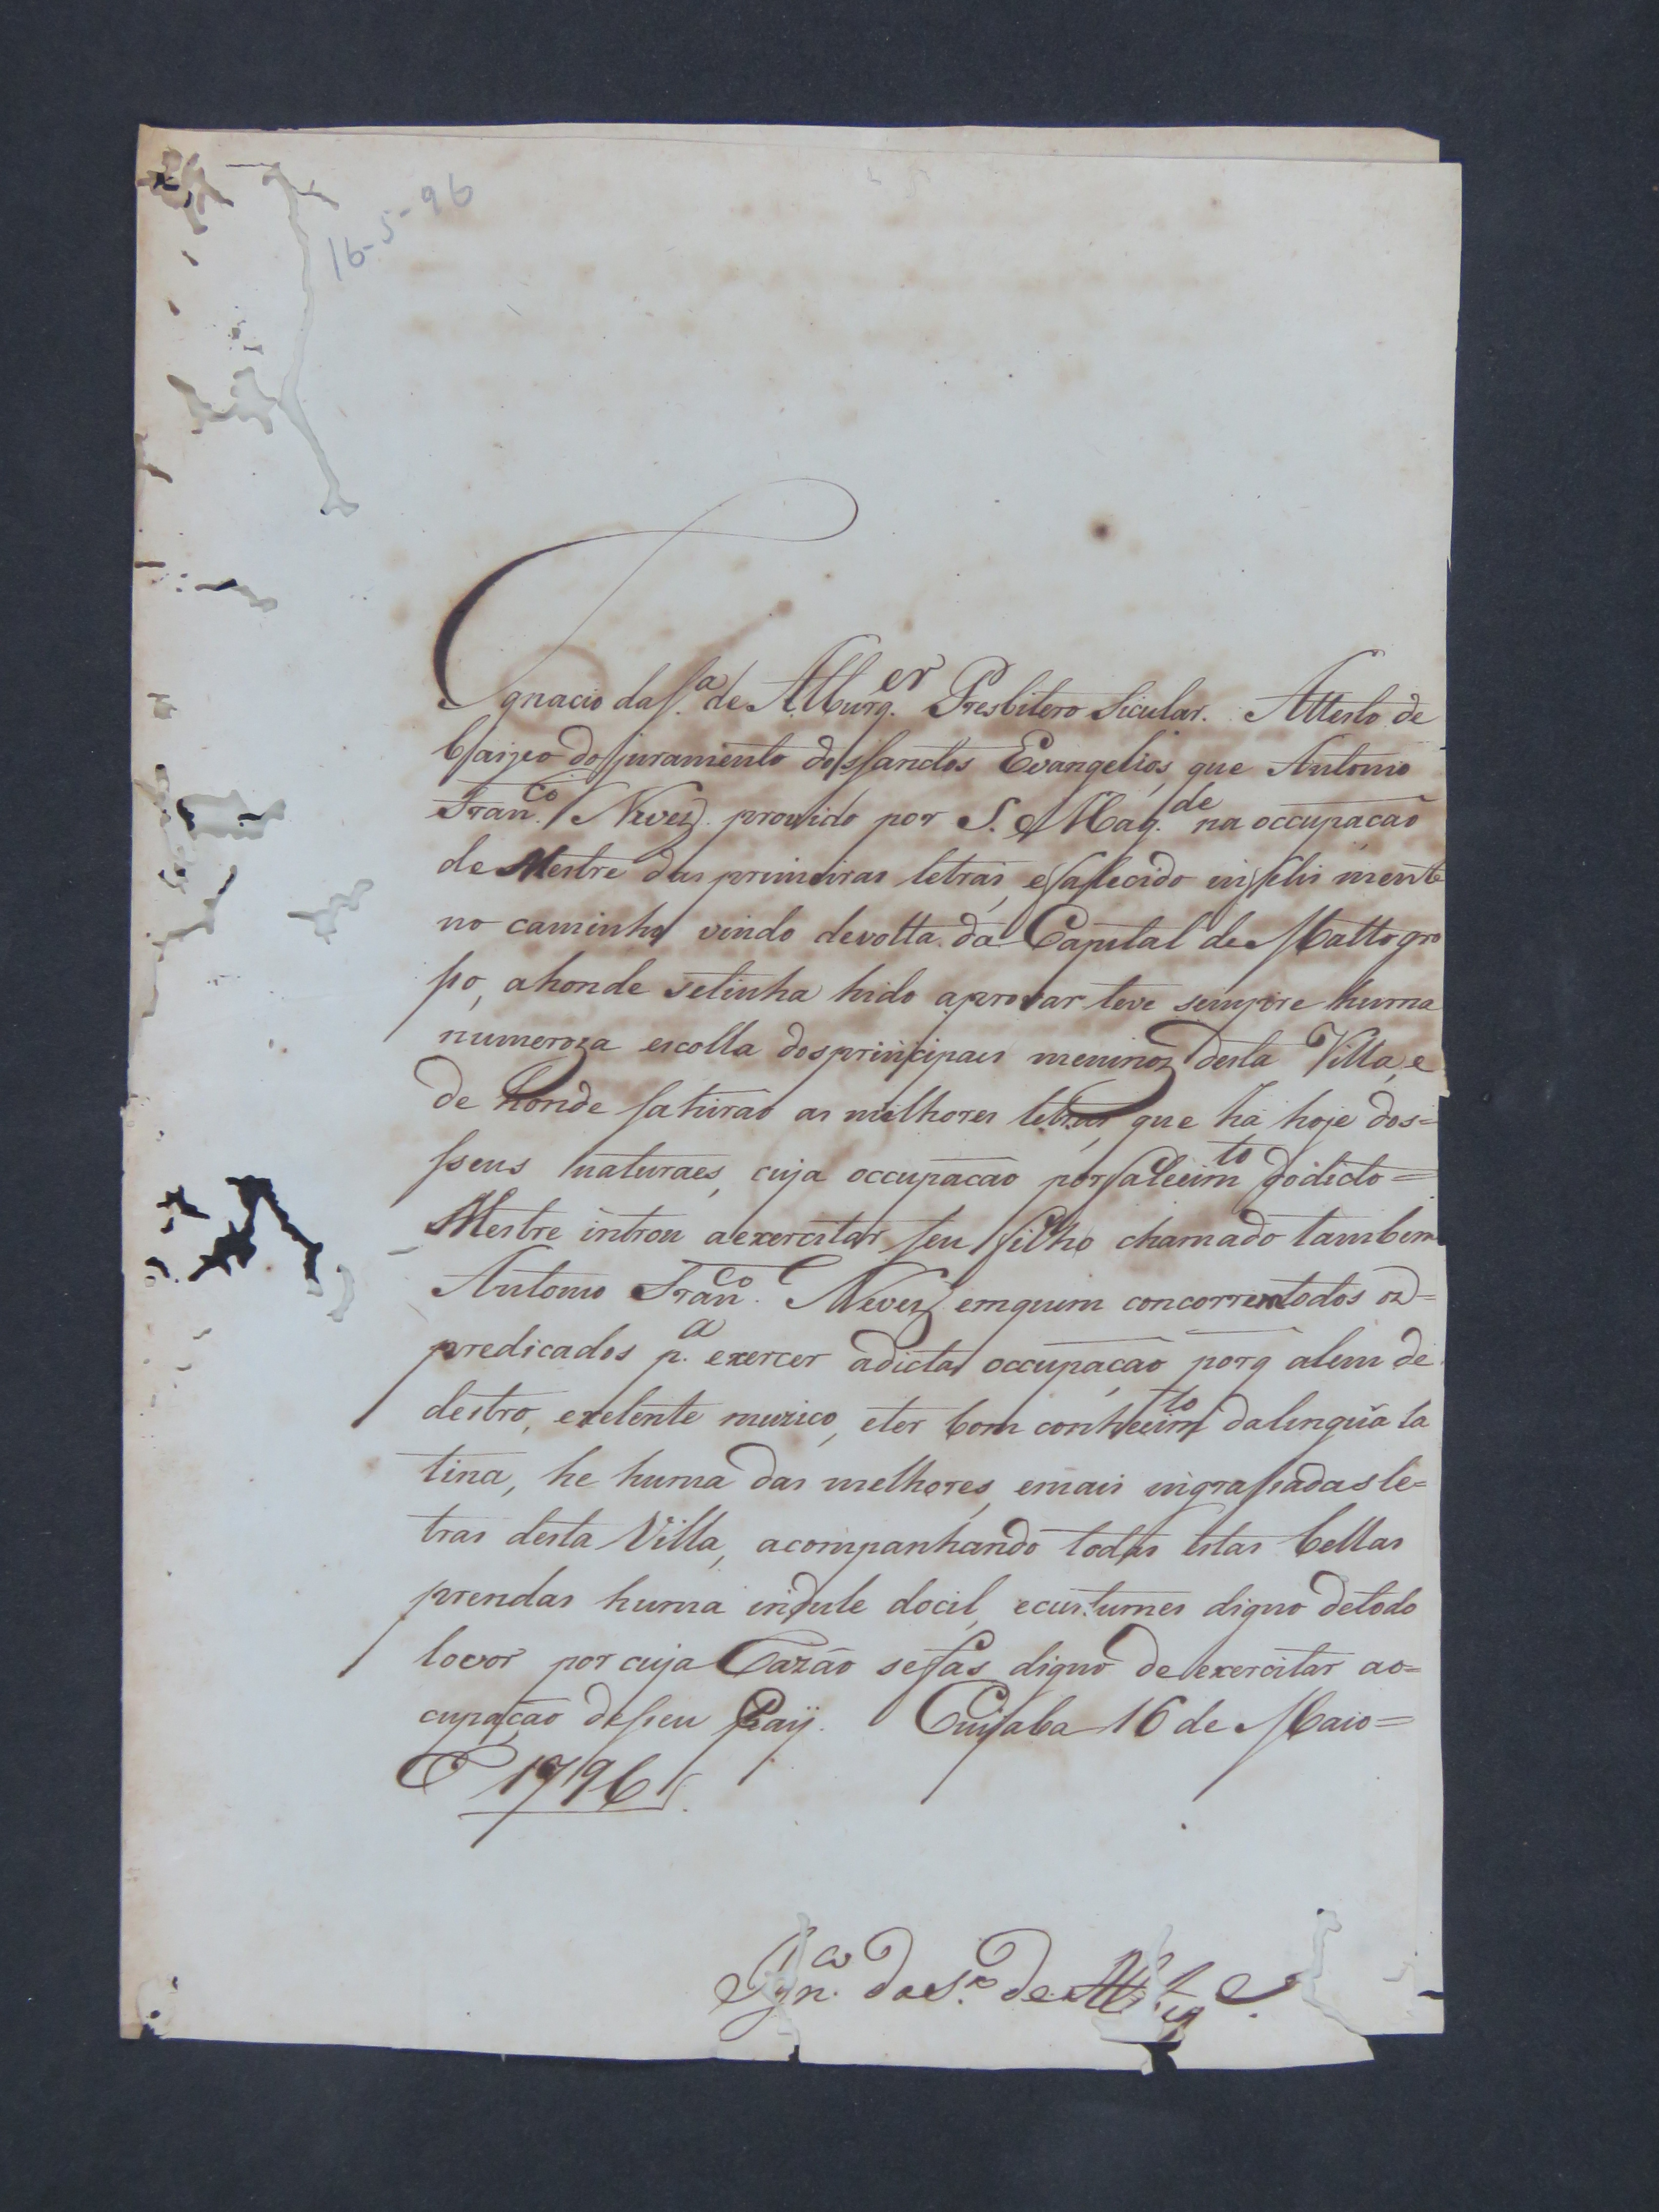 16-5-96
Ignacio da S.ª de Alburq.er Presbitero Sicular. Attesto de
baixo do juramento dos Sanctos Evangelios, que Antonio
Fran.co Nevez provido por S. Mag.de na occupação
de Mestre das primeiras letras, e falecido infelis mente
no caminho vindo devolta da Capital de Matto gro
sso, ahonde setinha hido aprovar teve sempre huma
numeroza escolla dos principais meninoz desta Villa, e
de honde sahirão as milhores letras, que há hoje dos=
sseus naturaes, cuja occupação por falecim.to do dicto=
Mestre introu a exercitar seu filho chamado tambem
Antonio Fran.co Nevez emquem concorrem todos oz=
predicados p.ª exercer adicta occupação porq alem de
destro, exelente muzico, e ter bom conhecim.to dalingũa la
tina, he huma das melhores, emais ingrassadas le=
tras desta Villa, acompanhando todas estas bellas
prendas huma indule docil, ecustumes digno detodo
lovor por cuja Razão sefás digno de exercitar ao=
cupação deseu Pay. Cuijaba 16 de Maio=
e 1796
Ign.co da S.ª de